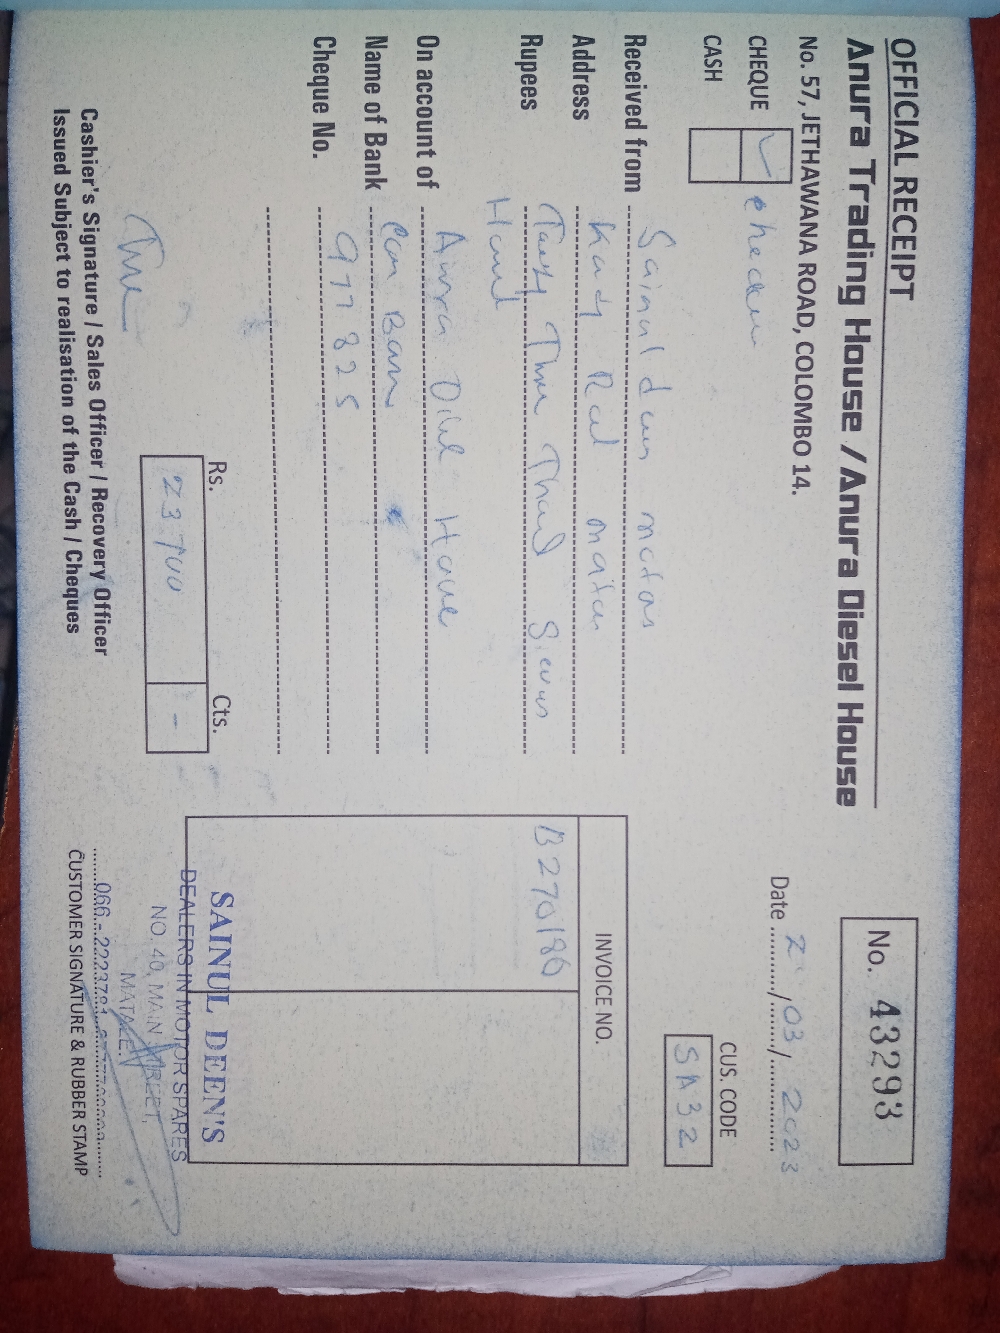 OFFICIAL RECEIPT
Anura Trading House / Anura Diesel House
No. 57, JETHAWANA ROAD, COLOMBO 14.
No. 43293
CHEQUE
CASH
Date 2 / 03 / 2023
CUS. CODE
SA32
Received from Sainul deen motors
Address
Rupees Thousand
On account of Anura
Name of Bank
Cheque No. 977825
INVOICE NO.
B270180
Rs. Cts.
23700 -
Cashier's Signature / Sales Officer / Recovery Officer
Issued Subject to realisation of the Cash / Cheques
SAINUL DEEN'S
DEALERS IN MOTOR SPARES
NO. 40, MAIN STREET,
MATALE.
066 - 2223781
CUSTOMER SIGNATURE & RUBBER STAMP